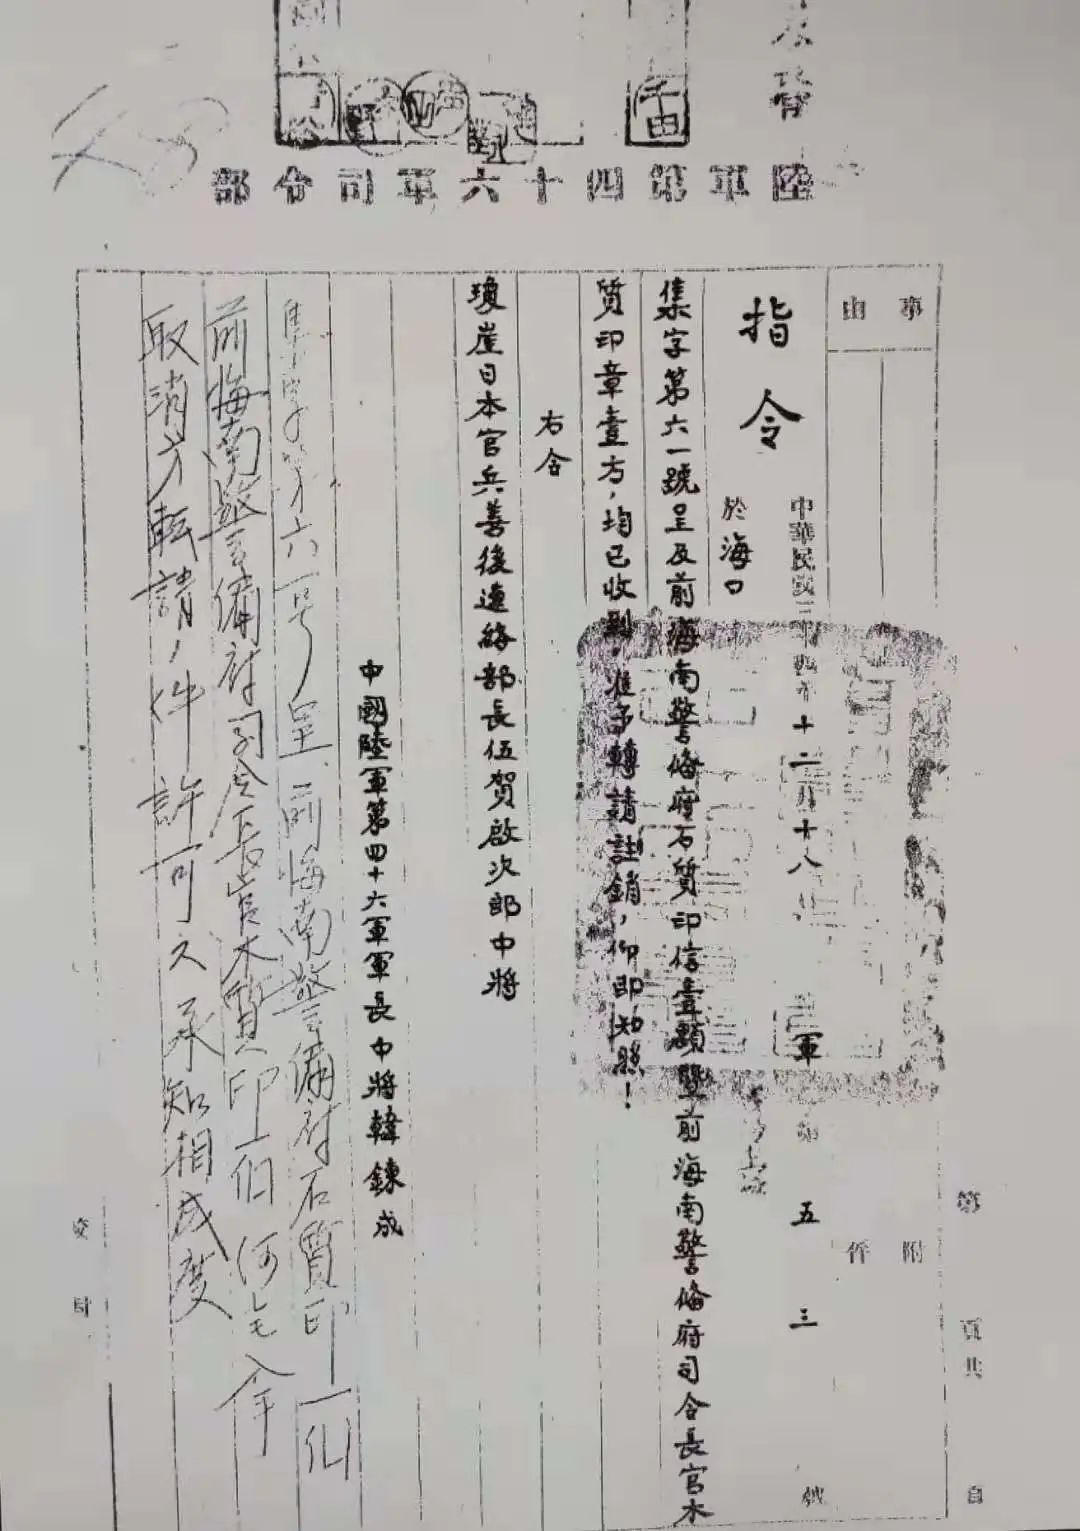 陸軍第四十六軍司令部
事由
附件
指令
中華民國三十四年十二月十八日
於海口
軍 第五三號
集字第六一號呈及前海南警備府石質印信壹顆暨前海南警備府司令長官木
質印章壹方，均已收到，准予轉請註銷，仰即知照！
右令
瓊崖日本官兵善後連絡部長伍賀啟次郎中將
中國陸軍第四十六軍軍長中將韓鍊成
集字第六一号呈前海南警備府石質印一
前海南警備府司令長官木質印一
取消方転請，件許可
承知相成度
第
頁共
千田